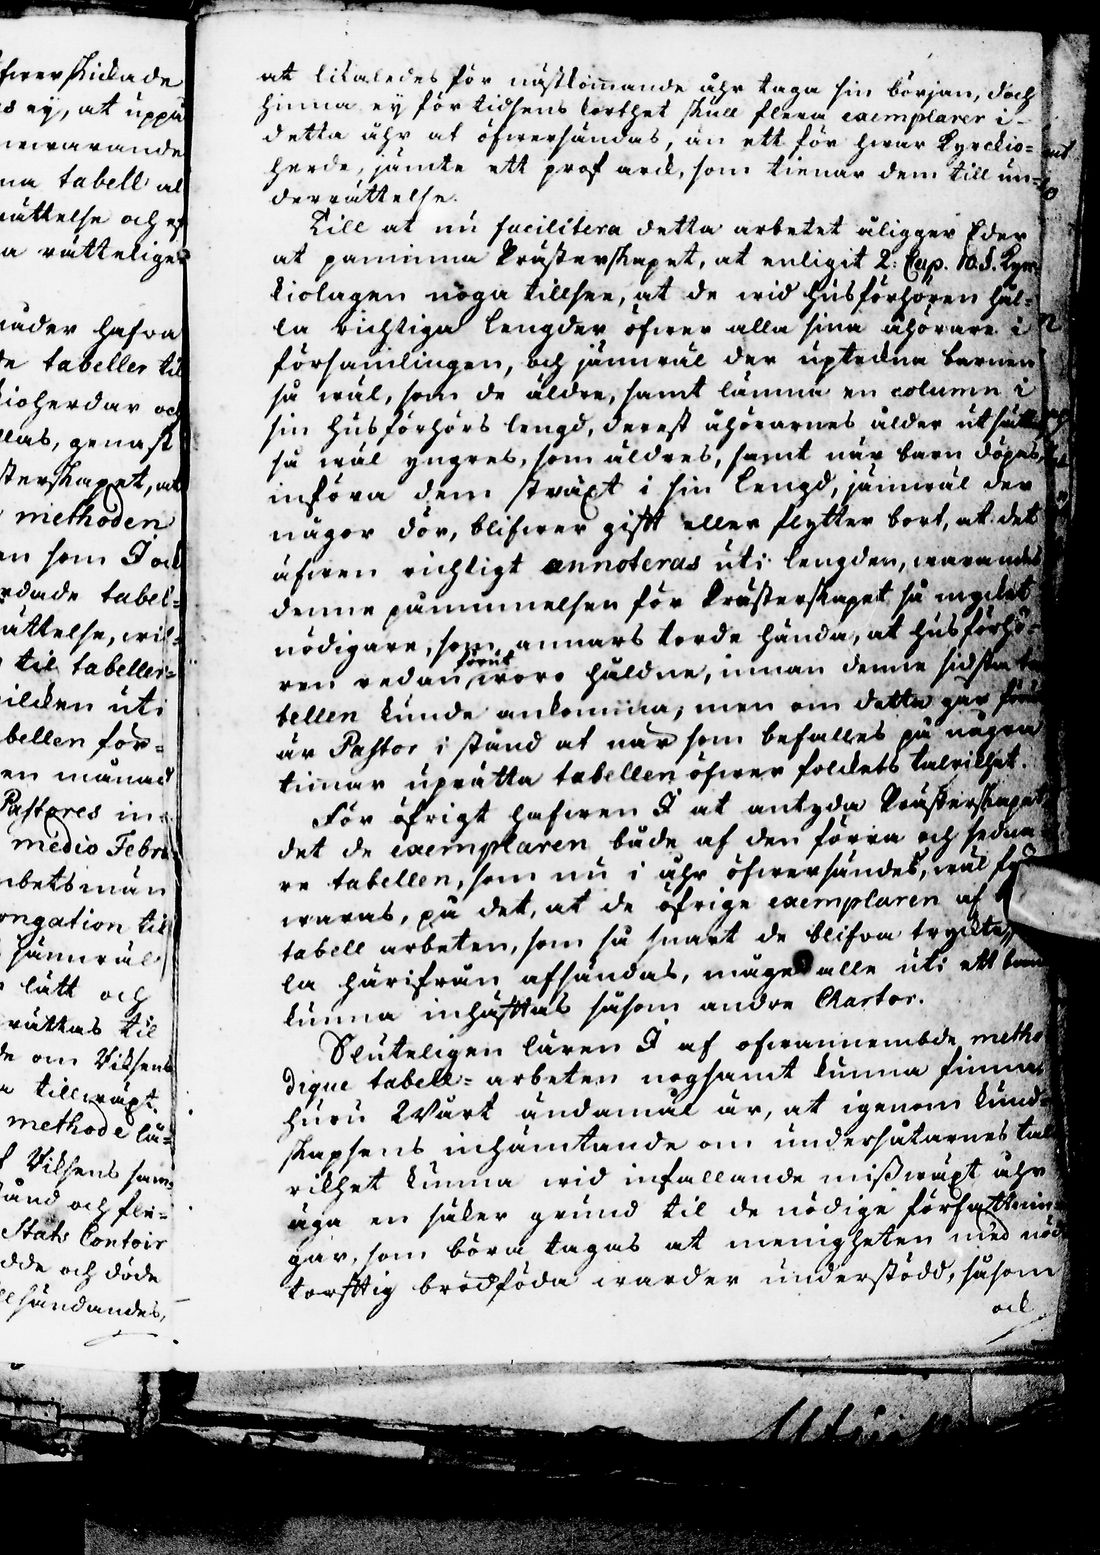 fwerskickade
ey, at uppå
newarande
na tabell al
rättelse och ef
a rätteliges
åder hafwa
de tabeller til
kioherdar och
llas, genast
sterskapet, at
methoden
en som I ock
rdade tabel=
ättelse, wil=
til tabeller=
ilcken uti
bellen för=
en månad
Pastores in=
medio Febru
mbetsmän
ongation til
jämwäl
lätt och
rättas til
de om Riksens
a tillwäxt.
methode lä=
f Riksens sam=
tånd och fle=
Stats Contoir
dde och döde
llsändandes,
at likaledes för nästkommande åhr taga sin början, doch
hinna ey för tidsens korthet skull flera exemplarer i
detta åhr at öfwersändas, än ett för hwar Kyrckio=
herde, jämte ett prof arck, som tienar dem till un=
derrättelse.
Till at nu facilitera detta arbetet åligger Eder
at påminna Prästerskapet, at enligit 2. Cap. 10. §. Kyr=
kiolagen noga tillsee, at de wid husförhören hål=
la richtiga lengder öfwer alla sina åhörare i
församlingen, och jämwäl der uptekna barnen
så wäl, som de äldre, samt lämna en column i
sin husförhörs lengd, derest åhörarnes ålder utsättes
så wäl yngres, som äldres, samt när barn döpes,
införa dem sträxt i sin lengd, jämwäl der
någor dör, blifwer gift eller flytter bort, at det
äfwen richtigt annoteras uti lengden, warandes
denne påminnelsen för Prästerskapet så mycket
nödigare, som annars torde hända, at husförhö=
ren redan förut woro håldne, innan denne sidsta ta
bellen kunde ankomma; men om detta går för
är Pastor i stånd at när som befalles på några
timar uprätta tabellen öfwer folckets talrikhet.
För öfrigt hafwen I at antyda Prästerskapet
det de exemplaren både af den förra och sedna
re tabellen, som nu i åhr öfwersändes, wäl
waras, på det, at de öfrige exemplaren af
tabell arbeten, som så snart de blifwa tryckte,
la härifrån afsändas, måge alle uti ett band
kunna inhäfftas såsom andre Chartor.
Sluteligen lären I af ofwannembde metho
dique tabell=arbeten nogsamt kunna finna
huru Wårt ändamål är, at igenom kund=
skapsens inhämtande om undersåtarnes tal
rikhet kunna wid infallande misswäxt åhr
äga en säker grund til de nödige författnin=
gar, som böra tagas at menigheten med nöd
torfftig brödföda warder understödd, såsom
ock